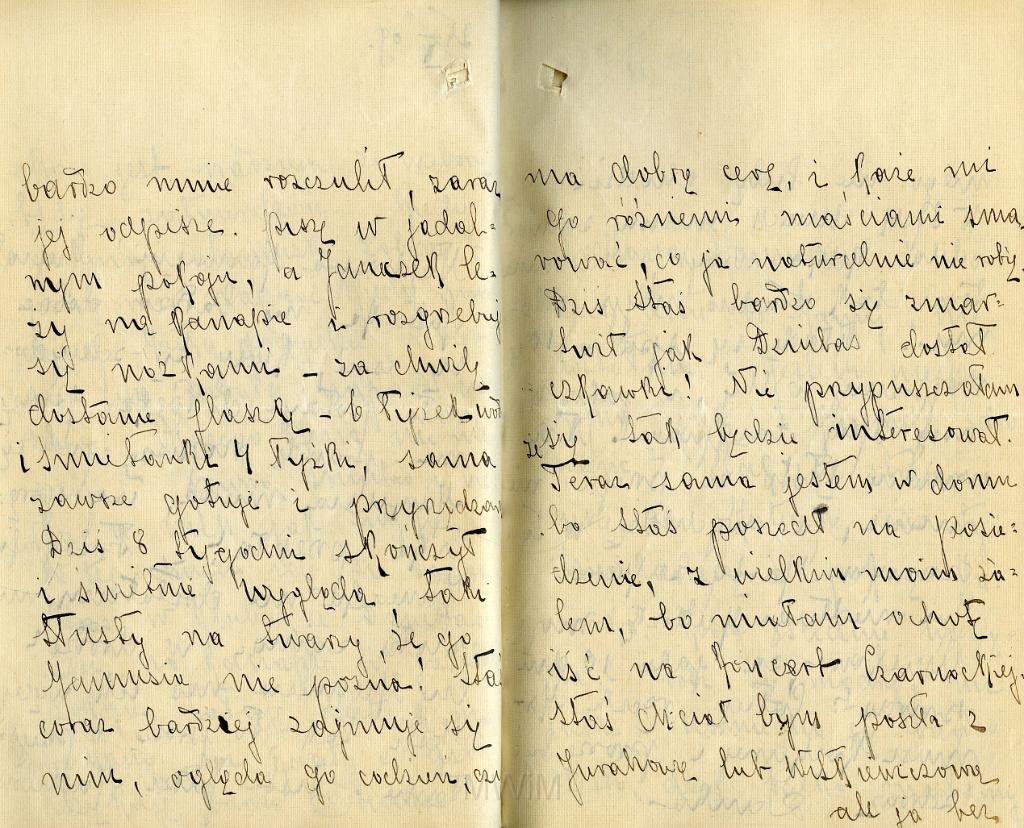 bardzo mnie rozczulił, zaraz
jej odpiszę. Piszę w jadal-
nym pokoju, a Janeczek le-
ży na kanapie i rozgrzebuj
się nóżkami – za chwilę
dostanie flaszkę – 6 łyżek wod
i śmietanki 4 łyżki, sama
zawsze gotuję i przyrządzam
Dziś 8 tygodni skończył
i świetnie wygląda, taki
tłusty na twarzy, że go
Mamusia nie pozna! Staś
coraz bardziej zajmuje się
nim, ogląda go codzien, czy
ma dobrą cerę, i każe mi
go różnemi maściami sma
rować, co ja naturalnie nie robię.
Dziś Staś bardzo się zmar-
twił jak Dziubas dostał
czkawki! Nie przypuszczałam
że się tak będzie interesował.
Teraz sama jestem w domu
bo Staś poszedł na posie-
dzenie, z wielkim moim ża-
lem, bo miałam ochotę
iść na koncert Czarnockiej.
Staś chciał bym poszła z
Jurakową lub Witkiewiczową
ale ja bez
MWiM